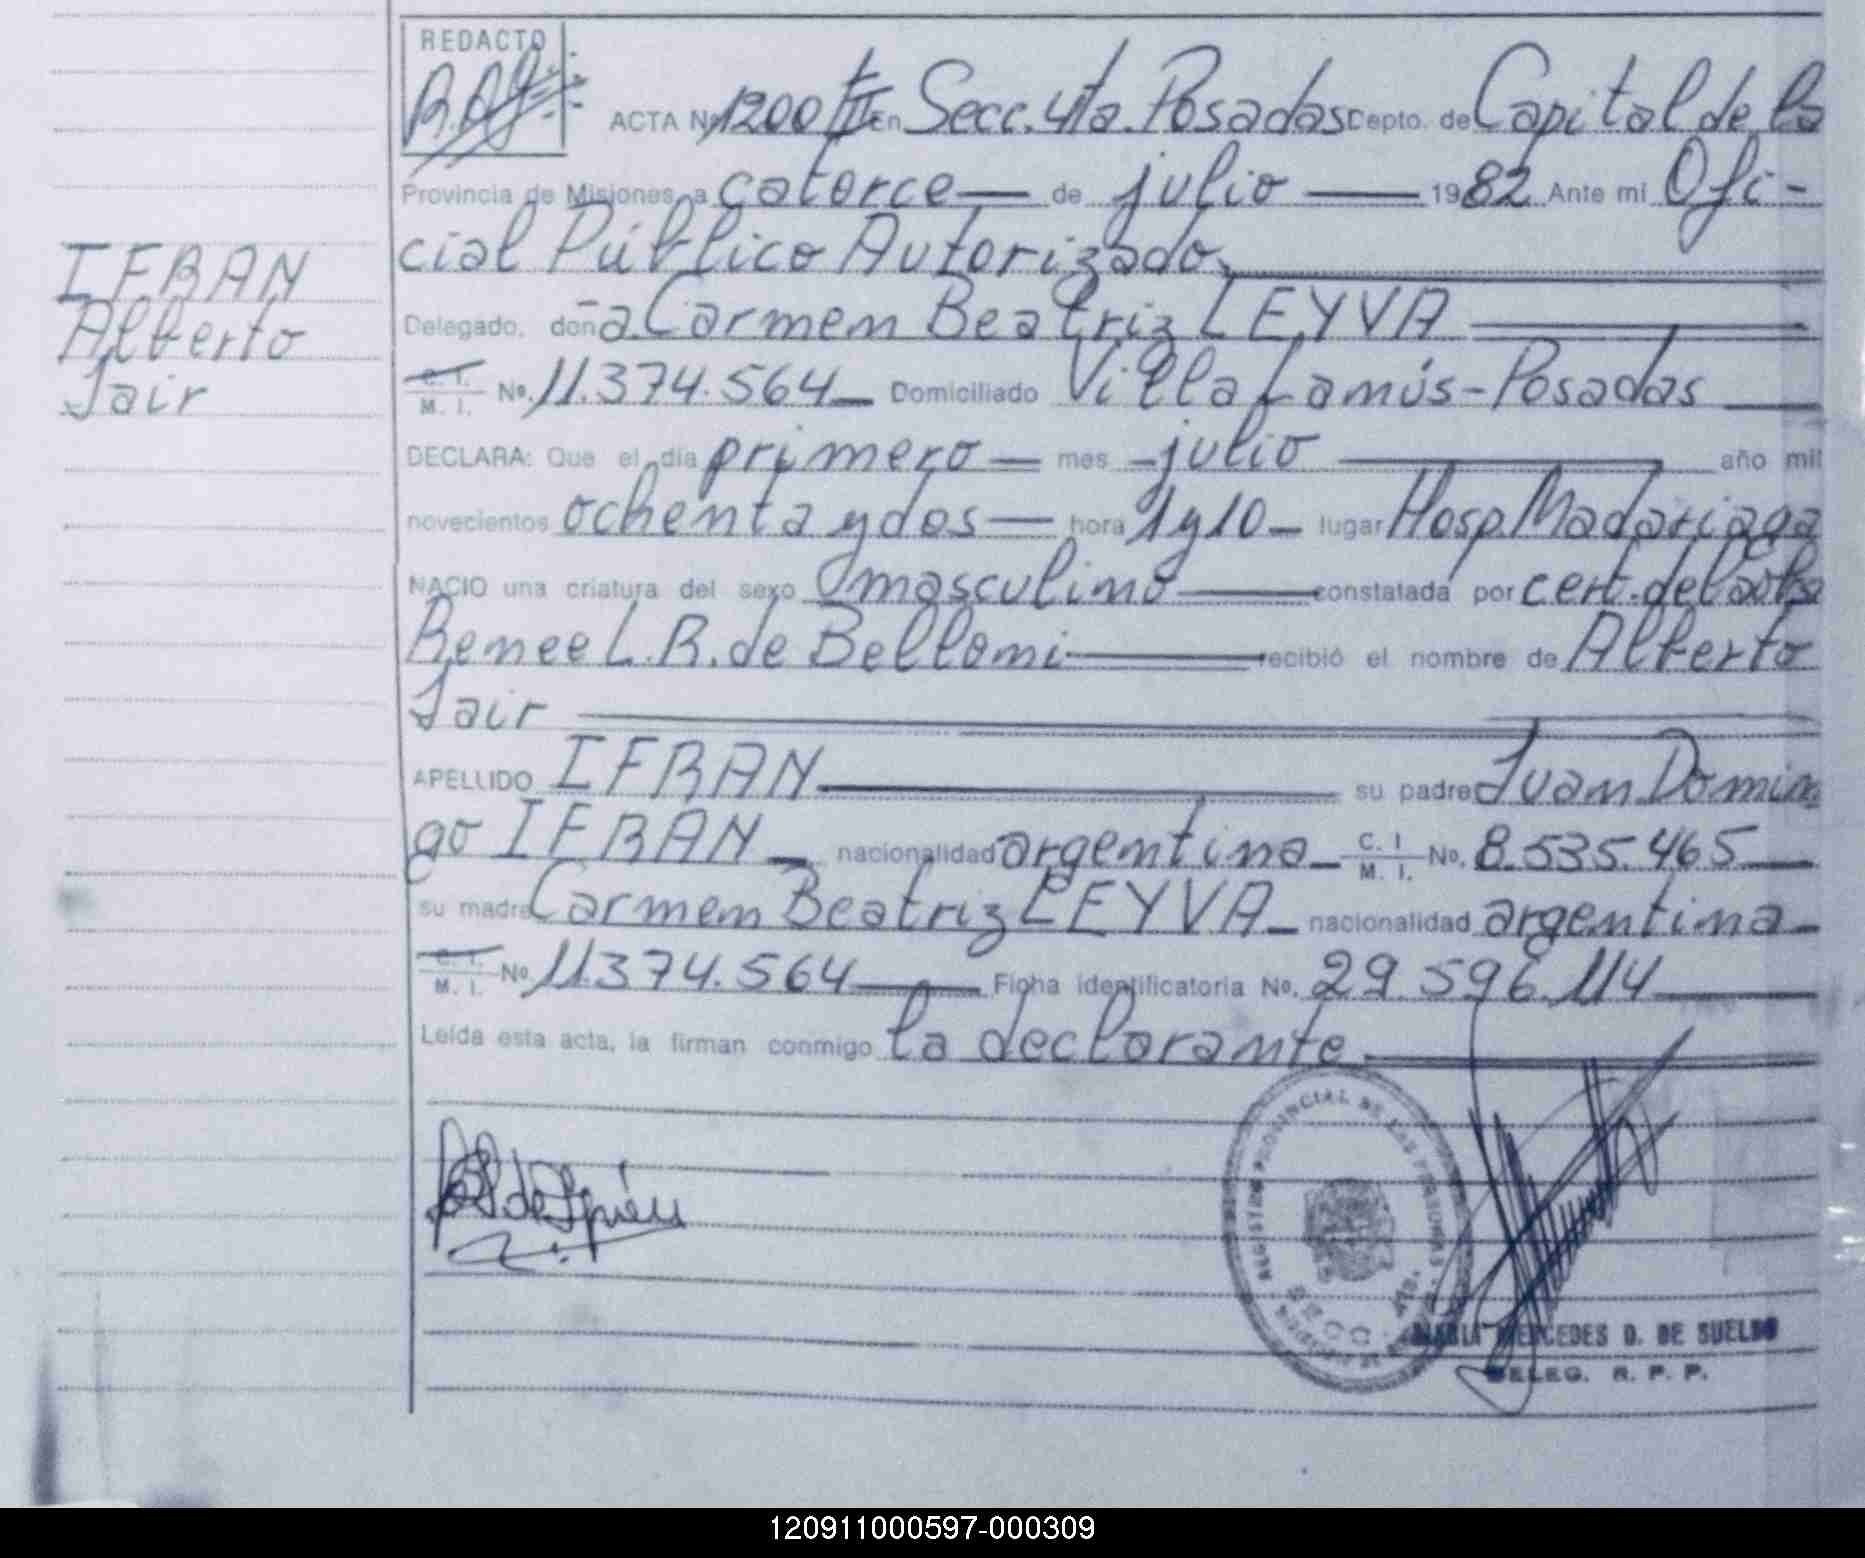 REDACTO
ACTA No. 1200 tII En Secc. 4ta. Posadas Depto. de Capital de la
Provincia de Misiones, a catorce — de julio — 1982 Ante mi Ofi-
cial Público Autorizado,
Delegado, doña Carmen Beatriz LEYVA
C. I. M. I. No. 11.374.564 Domiciliado Villa Lanús - Posadas
DECLARA: Que el día primero — mes julio — año mil
novecientos ochenta y dos — hora 1 y 10 lugar Hosp. Madariaga
NACIO una criatura del sexo masculino — constatada por cert. de la obst.
Renee L. R. de Bellomi — recibió el nombre de Alberto
Jair
APELLIDO IFRAN — su padre Juan Domin
go IFRAN nacionalidad argentina C. I M. I. No. 8.535.465
su madre Carmen Beatriz LEYVA nacionalidad argentina
C. I. M. I. No. 11.374.564 Ficha identificatoria No. 29.596.114
Leída esta acta, la firman conmigo la declarante
IFRAN
Alberto
Jair
REGISTRO PROVINCIAL DE LAS PERSONAS
MARIA MERCEDES D. DE SUELDO
DELEG. R. P. P.
120911000597-000309